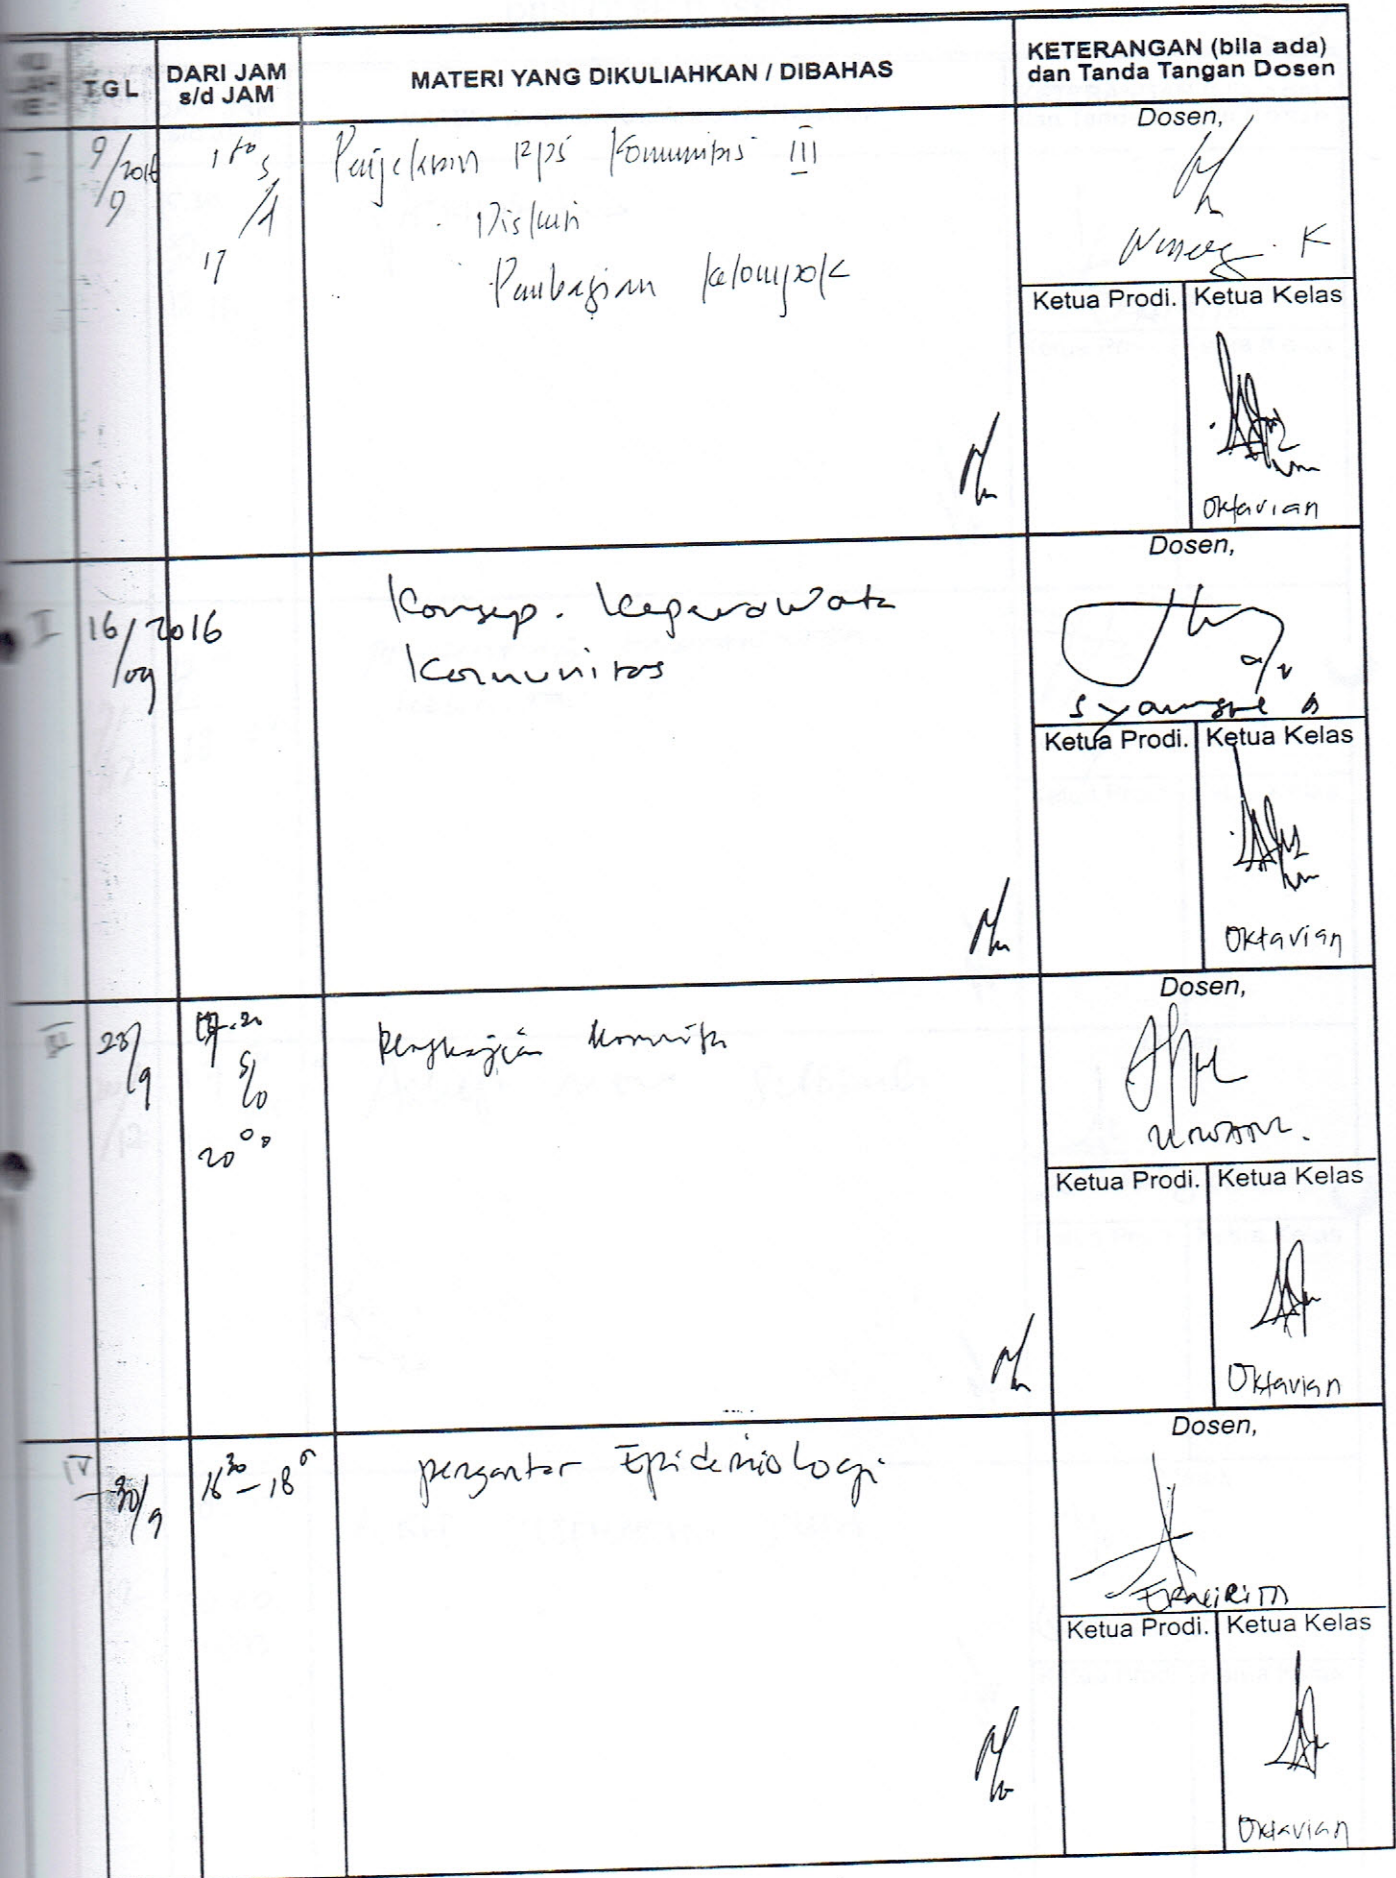 TGL
DARI JAM
s/d JAM
MATERI YANG DIKULIAHKAN / DIBAHAS
KETERANGAN (bila ada)
dan Tanda Tangan Dosen
I
9/9 2016
17
Penjelasan RPS Komunitas III
Diskusi
Pembagian kelompok
Dosen,
Ketua Prodi.
Ketua Kelas
Oktavian
16/09 2016
Konsep. Keperawata
Komunitas
Dosen,
Syamsul
Ketua Prodi.
Ketua Kelas
Oktavian
III
23/9
s/d
20⁰⁰
Pengkajian
Dosen,
Ketua Prodi.
Ketua Kelas
Oktavian
IV
30/9
16³⁰ - 18
pengantar Epidemiologi
Dosen,
Ketua Prodi.
Ketua Kelas
Oktavian